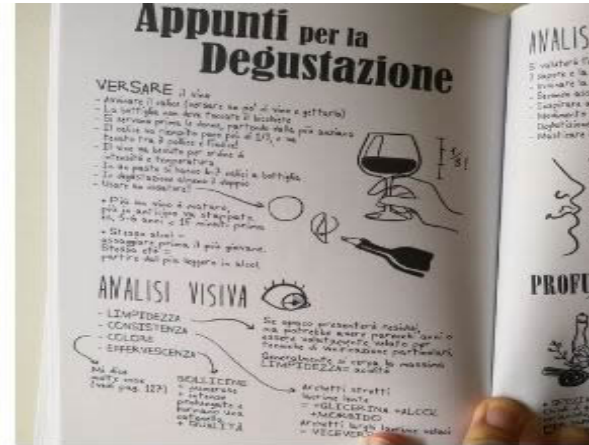 Appunti per la
Degustazione
VERSARE il vino
- Avvinare il calice (versare un po' di vino e gettarlo)
- La bottiglia non deve toccare il bicchiere
- Si servono prima le donne, partendo dalla più anziana
- Il calice va riempito poco più di 1/3, e va
tenuto tra il pollice e l'indice!
- Il vino va bevuto per ordine di
intensità e temperatura
- In un pasto si hanno 6-7 calici a bottiglia
- In degustazione almeno il doppio
- Usare un
1/3!
+ Più un vino è maturo,
più in anticipo va stappato
5-6 anni = 15 minuti prima
+ Stesso alcol =
assaggiare prima il più giovane.
Stessa età =
partire dal più leggero in alcol
ANALISI VISIVA
- LIMPIDEZZA
- CONSISTENZA
- COLORE
- EFFERVESCENZA
Se opaco presenterà residui,
ma potrebbe avere parecchi anni o
essere volutamente velato per
tecniche di vinificazione particolari
Generalmente si cerca la massima
LIMPIDEZZA = acidità
Mi dice
molte cose
(vedi pag. 127)
BOLLICINE
+ numerose
+ intense
prolungate e
formano una
catenella
= QUALITÀ
Archetti stretti
lacrime lente
= +GLICERINA +ALCOL
+MORBIDO
Archetti larghi lacrime veloci
= VICEVER
ANALIS
PROFU